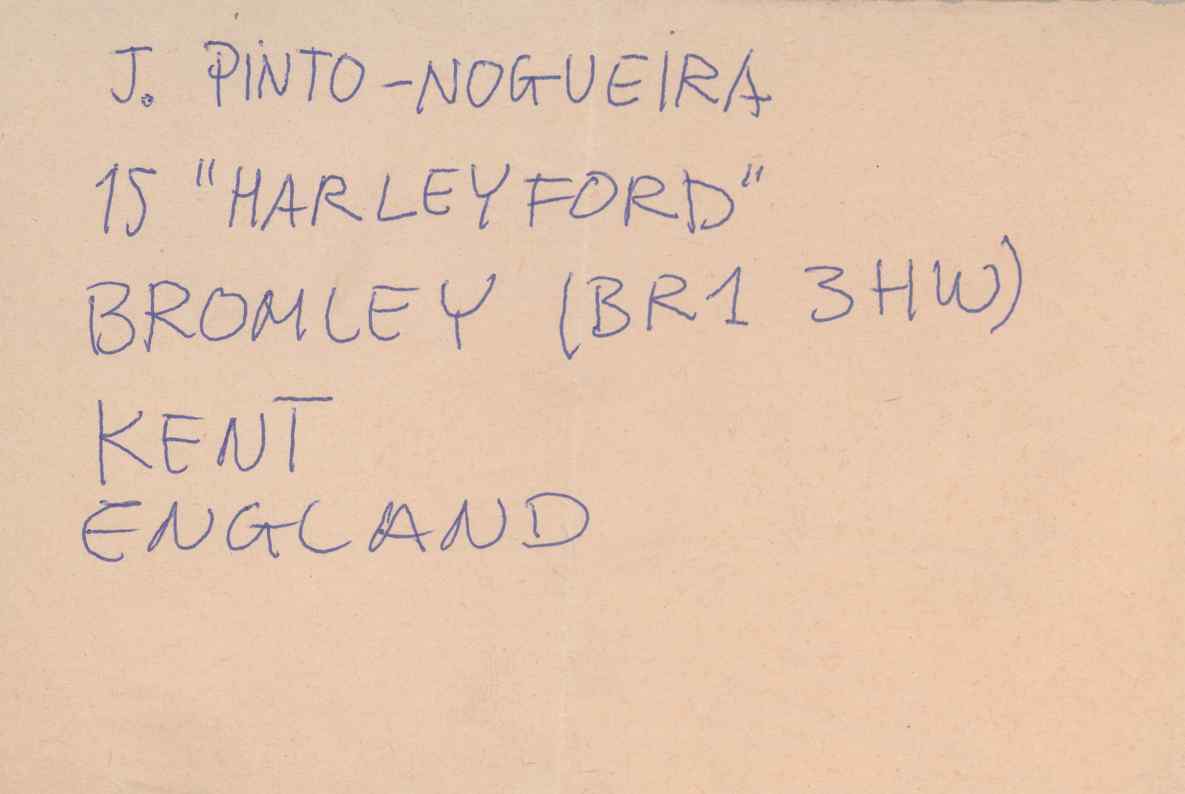 J. PINTO-NOGUEIRA
15 "HARLEYFORD"
BROMLEY (BR1 3HW)
KENT
ENGLAND